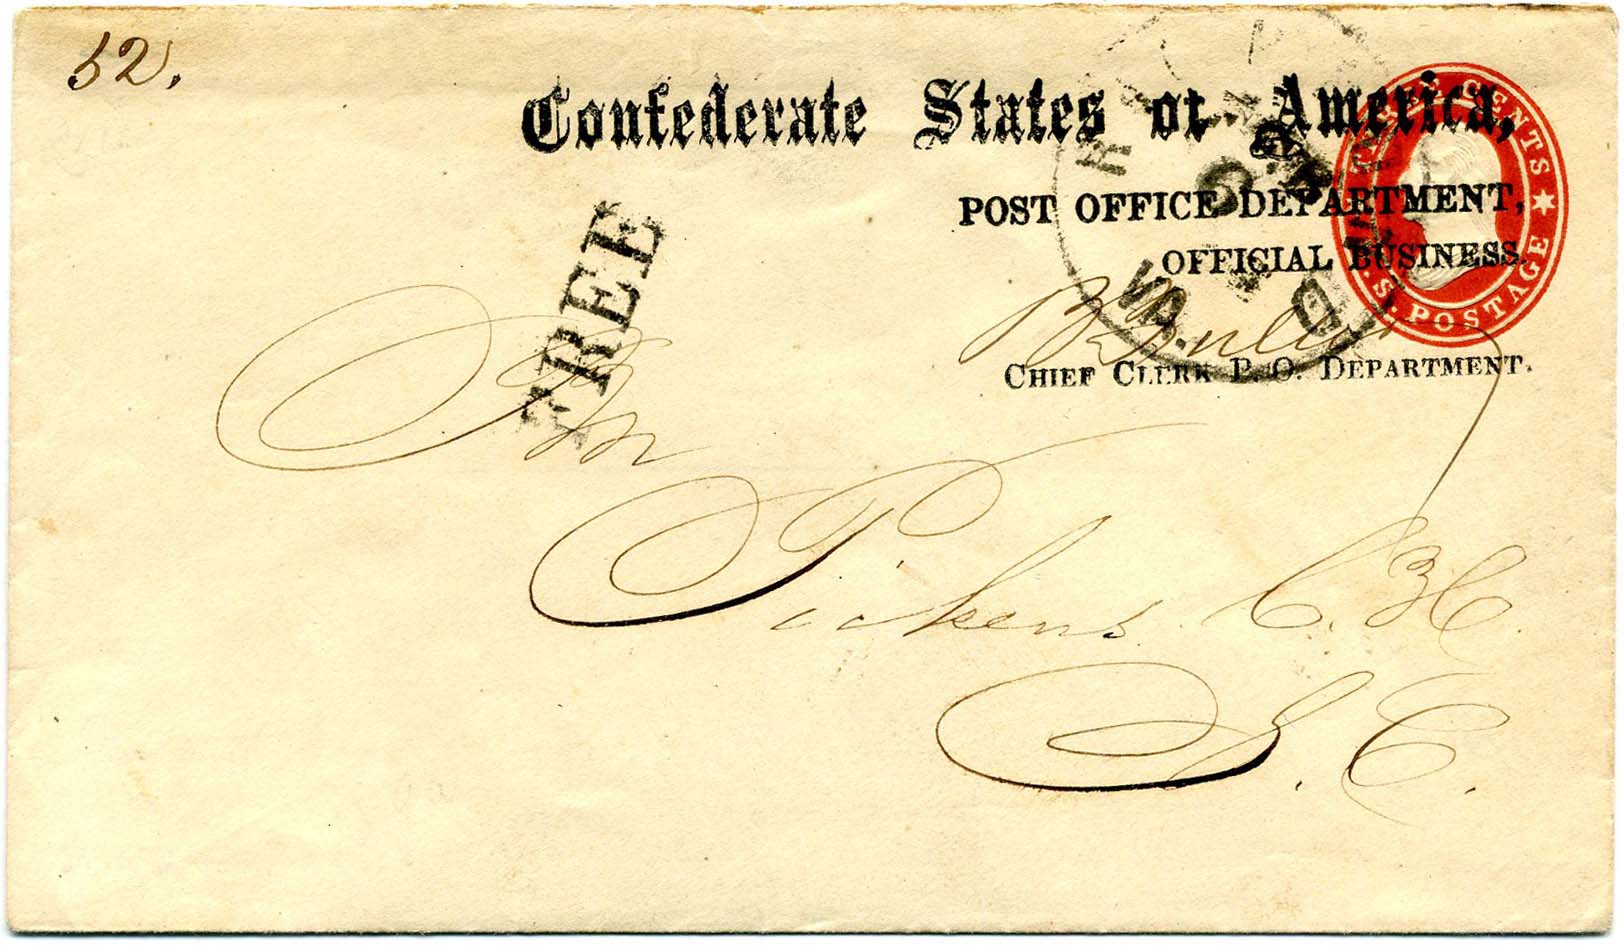 52.
Confederate States of America,
POST OFFICE DEPARTMENT,
OFFICIAL BUSINESS.
CHIEF CLERK P. O. DEPARTMENT.
FREE
THREE CENTS
U.S. POSTAGE
RICHMOND
VA.
P M
Pickens C. H.
S. C.